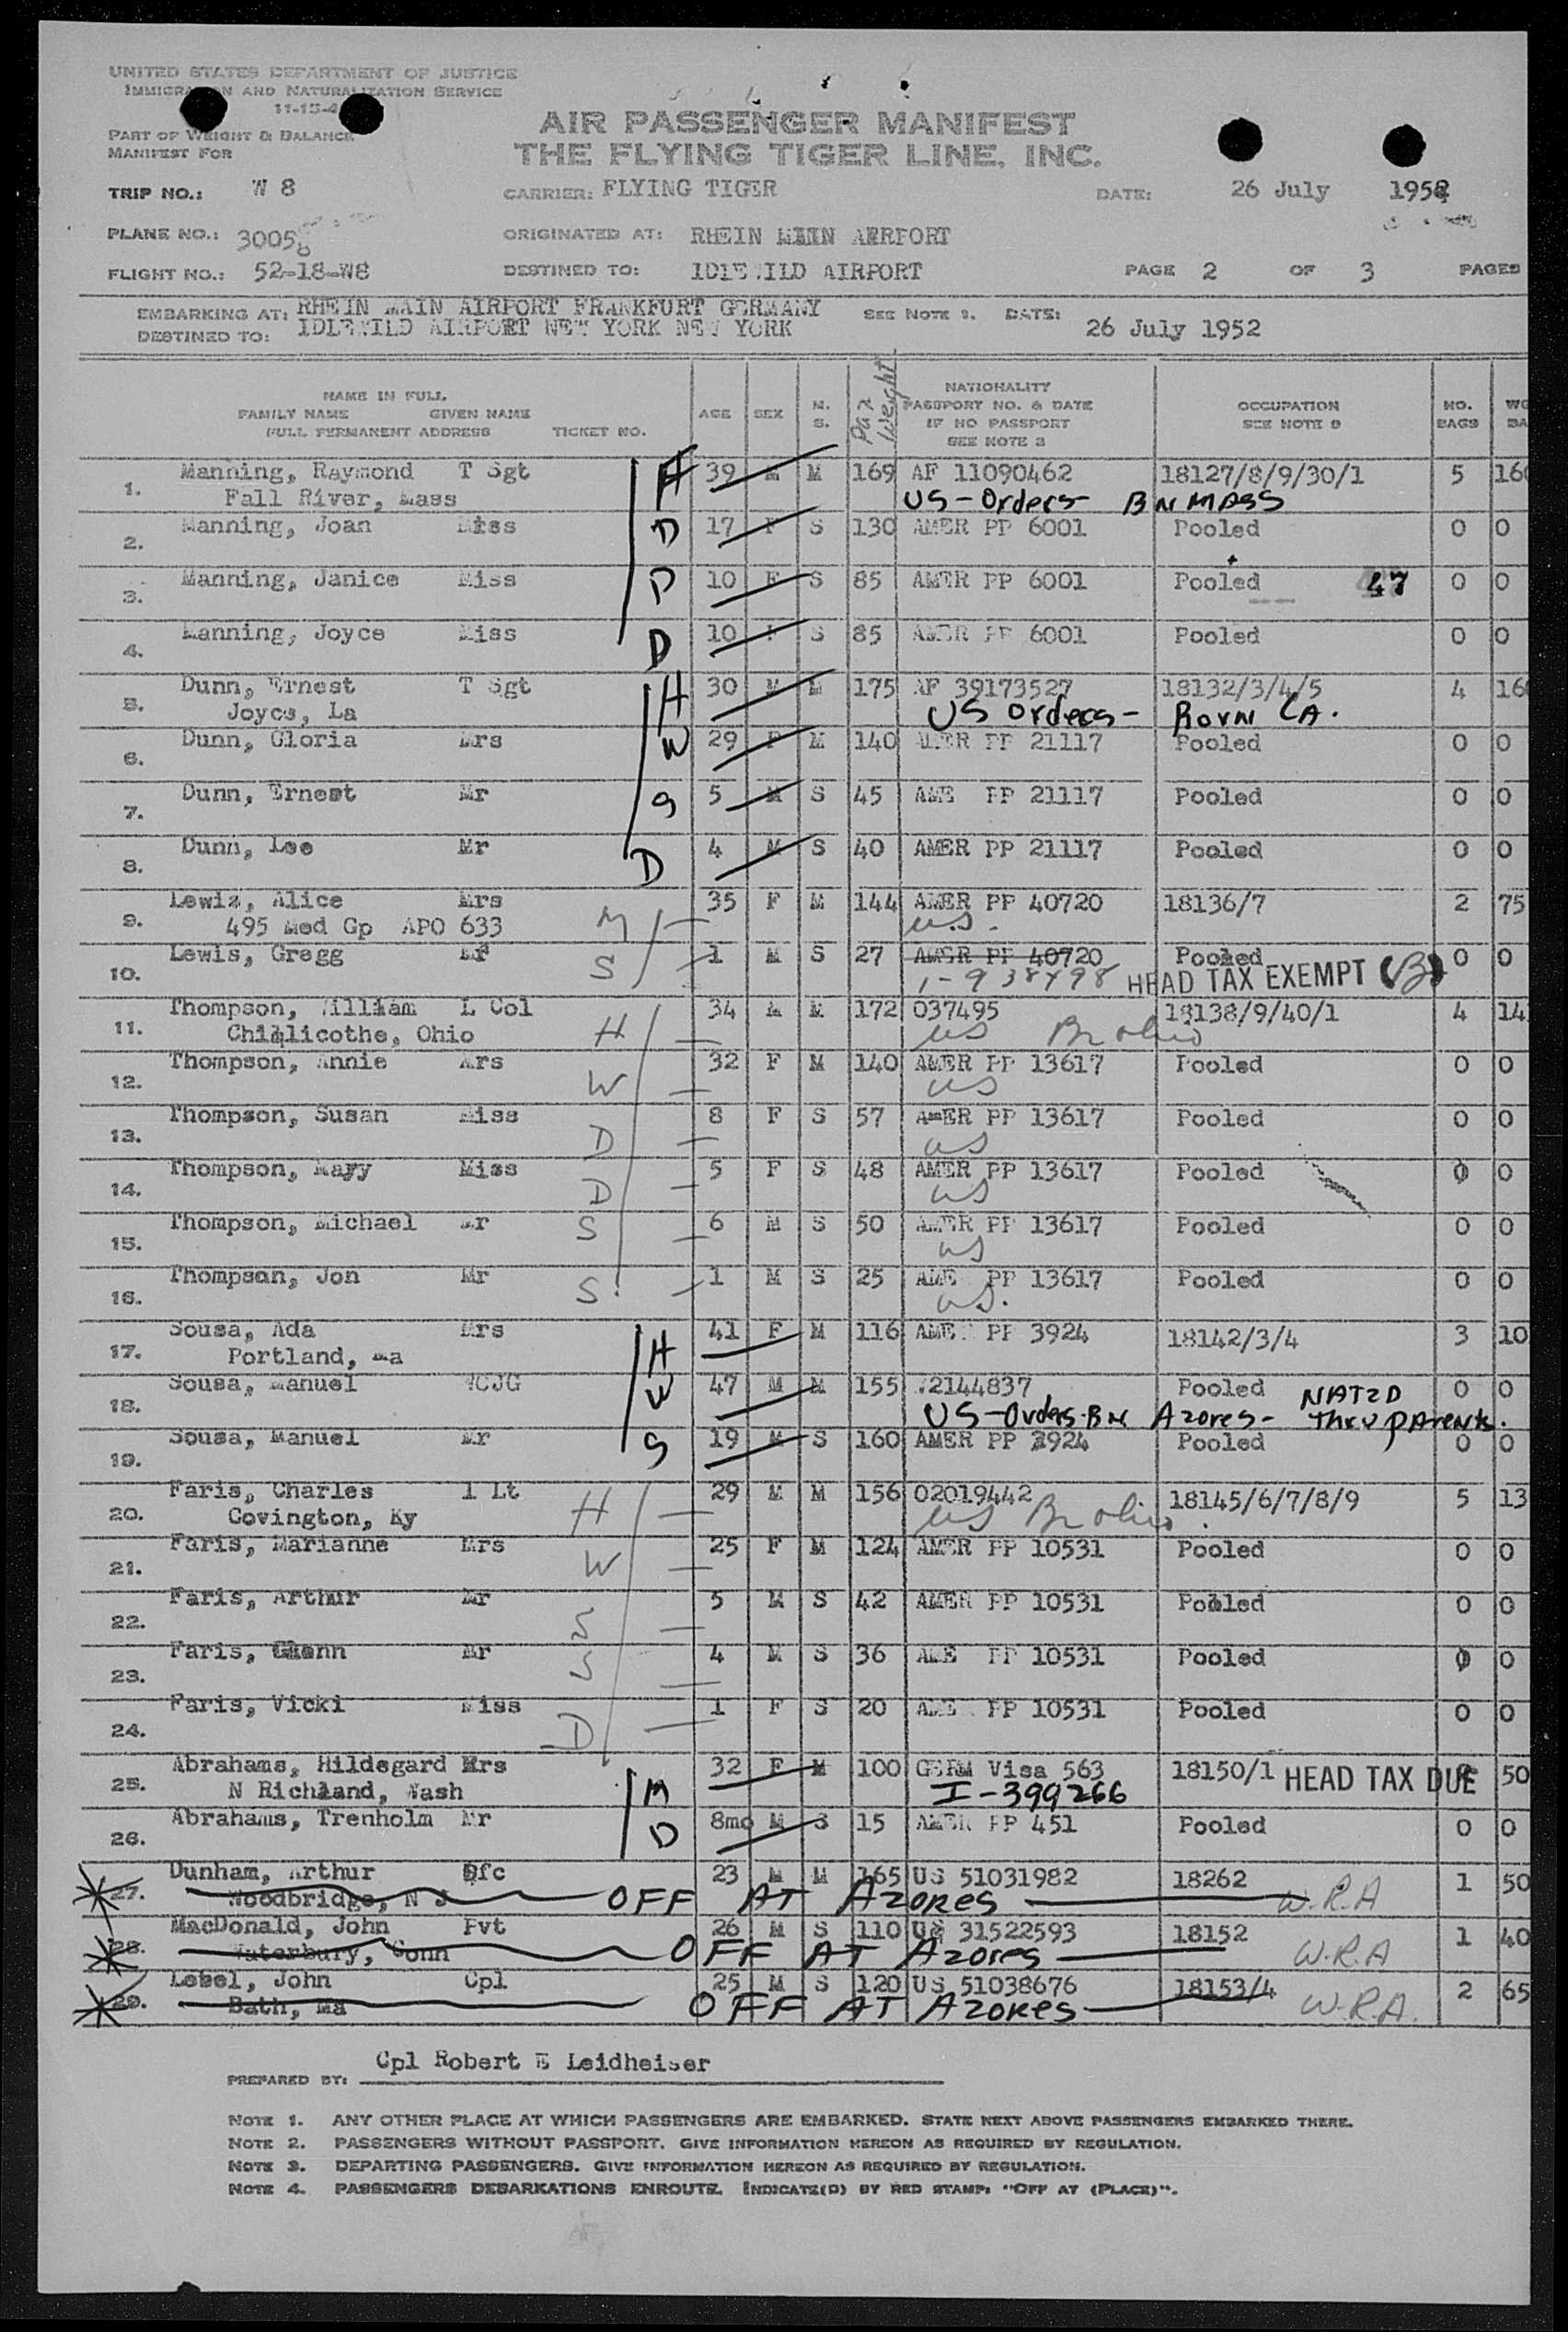 UNITED STATES DEPARTMENT OF JUSTICE
IMMIGRATION AND NATURALIZATION SERVICE
11-15-4
PART OF WEIGHT & BALANCE
MANIFEST FOR
AIR PASSENGER MANIFEST
THE FLYING TIGER LINE, INC.
TRIP NO.: W 8 CARRIER: FLYING TIGER DATE: 26 July 1952
PLANE NO.: 3005 ORIGINATED AT: RHEIN MAIN AIRPORT
FLIGHT NO.: 52-18-W8 DESTINED TO: IDLEWILD AIRPORT PAGE 2 OF 3 PAGES
EMBARKING AT: RHEIN MAIN AIRPORT FRANKFURT GERMANY SEE NOTE 1. DATE: 26 July 1952
DESTINED TO: IDLEWILD AIRPORT NEW YORK NEW YORK
NAME IN FULL
FAMILY NAME GIVEN NAME
FULL PERMANENT ADDRESS TICKET NO.
AGE SEX M. S. Pax Weight
NATIONALITY
PASSPORT NO. & DATE
IF NO PASSPORT
SEE NOTE 2
OCCUPATION
SEE NOTE 3
NO. BAGS
1. Manning, Raymond T Sgt H 39 M M 169 AF 11090462 18127/8/9/30/1 5 160
Fall River, Mass US-Orders BN MASS
2. Manning, Joan Miss D 17 F S 130 AMER PP 6001 Pooled 0 0
3. Manning, Janice Miss D 10 F S 85 AMER PP 6001 Pooled 47 0 0
4. Manning, Joyce Miss D 10 F S 85 AMER PP 6001 Pooled 0 0
5. Dunn, Ernest T Sgt H 30 M M 175 AF 39173527 18132/3/4/5 4 160
Joyce, La US Orders - Born LA.
6. Dunn, Gloria Mrs W 29 F M 140 AMER PP 21117 Pooled 0 0
7. Dunn, Ernest Mr S 5 M S 45 AME PP 21117 Pooled 0 0
8. Dunn, Lee Mr D 4 M S 40 AMER PP 21117 Pooled 0 0
9. Lewis, Alice Mrs M 35 F M 144 AMER PP 40720 18136/7 2 75
495 Med Gp APO 633 U.S.
10. Lewis, Gregg Mr S 1 M S 27 AMER PP 40720 Pooled 0 0
1-938498 HEAD TAX EXEMPT (B)
11. Thompson, William L Col H 34 M M 172 037495 18138/9/40/1 4 14
Chillicothe, Ohio US Bn Ohio
12. Thompson, Annie Mrs W 32 F M 140 AMER PP 13617 Pooled 0 0
US
13. Thompson, Susan Miss D 8 F S 57 AmER PP 13617 Pooled 0 0
US
14. Thompson, Mary Miss D 5 F S 48 AMER PP 13617 Pooled 0 0
US
15. Thompson, Michael Mr S 6 M S 50 AMER PP 13617 Pooled 0 0
US
16. Thompson, Jon Mr S. 1 M S 25 AME PP 13617 Pooled 0 0
US.
17. Sousa, Ada Mrs H 41 F M 116 AME PP 3924 18142/3/4 3 10
Portland, Ma
18. Sousa, Manuel WOJG W 47 M M 155 W2144837 Pooled 0 0
US-Orders-BN Azores- NATZD THRU PARENTS.
19. Sousa, Manuel Mr S 19 M S 160 AMER PP 3924 Pooled 0 0
20. Faris, Charles 1 Lt H 29 M M 156 02019442 18145/6/7/8/9 5 13
Covington, Ky US Bn Ohio.
21. Faris, Marianne Mrs W 25 F M 124 AMER PP 10531 Pooled 0 0
22. Faris, Arthur Mr S 5 M S 42 AMER PP 10531 Pooled 0 0
23. Faris, Glenn Mr S 4 M S 36 AME PP 10531 Pooled 0 0
24. Faris, Vicki Miss D 1 F S 20 AME PP 10531 Pooled 0 0
25. Abrahams, Hildegard Mrs M 32 F M 100 GERM Visa 563 18150/1 HEAD TAX DUE 50
N Richland, Wash I-399266
26. Abrahams, Trenholm Mr D 8mo M S 15 AMER PP 451 Pooled 0 0
27. Dunham, Arthur Pfc 23 M M 165 US 51031982 18262 1 50
Woodbridge, N J OFF AT AZORES W.R.A
28. MacDonald, John Pvt 26 M S 110 US 31522593 18152 1 40
Waterbury, Conn OFF AT AZORES W.R.A
29. Lebel, John Cpl 25 M S 120 US 51038676 18153/4 2 65
Bath, Ma OFF AT AZORES W.R.A.
PREPARED BY: Cpl Robert E Leidheiser
NOTE 1. ANY OTHER PLACE AT WHICH PASSENGERS ARE EMBARKED. STATE NEXT ABOVE PASSENGERS EMBARKED THERE.
NOTE 2. PASSENGERS WITHOUT PASSPORT. GIVE INFORMATION HEREON AS REQUIRED BY REGULATION.
NOTE 3. DEPARTING PASSENGERS. GIVE INFORMATION HEREON AS REQUIRED BY REGULATION.
NOTE 4. PASSENGERS DEBARKATIONS ENROUTE. INDICATE(D) BY RED STAMP: "OFF AT (PLACE)".